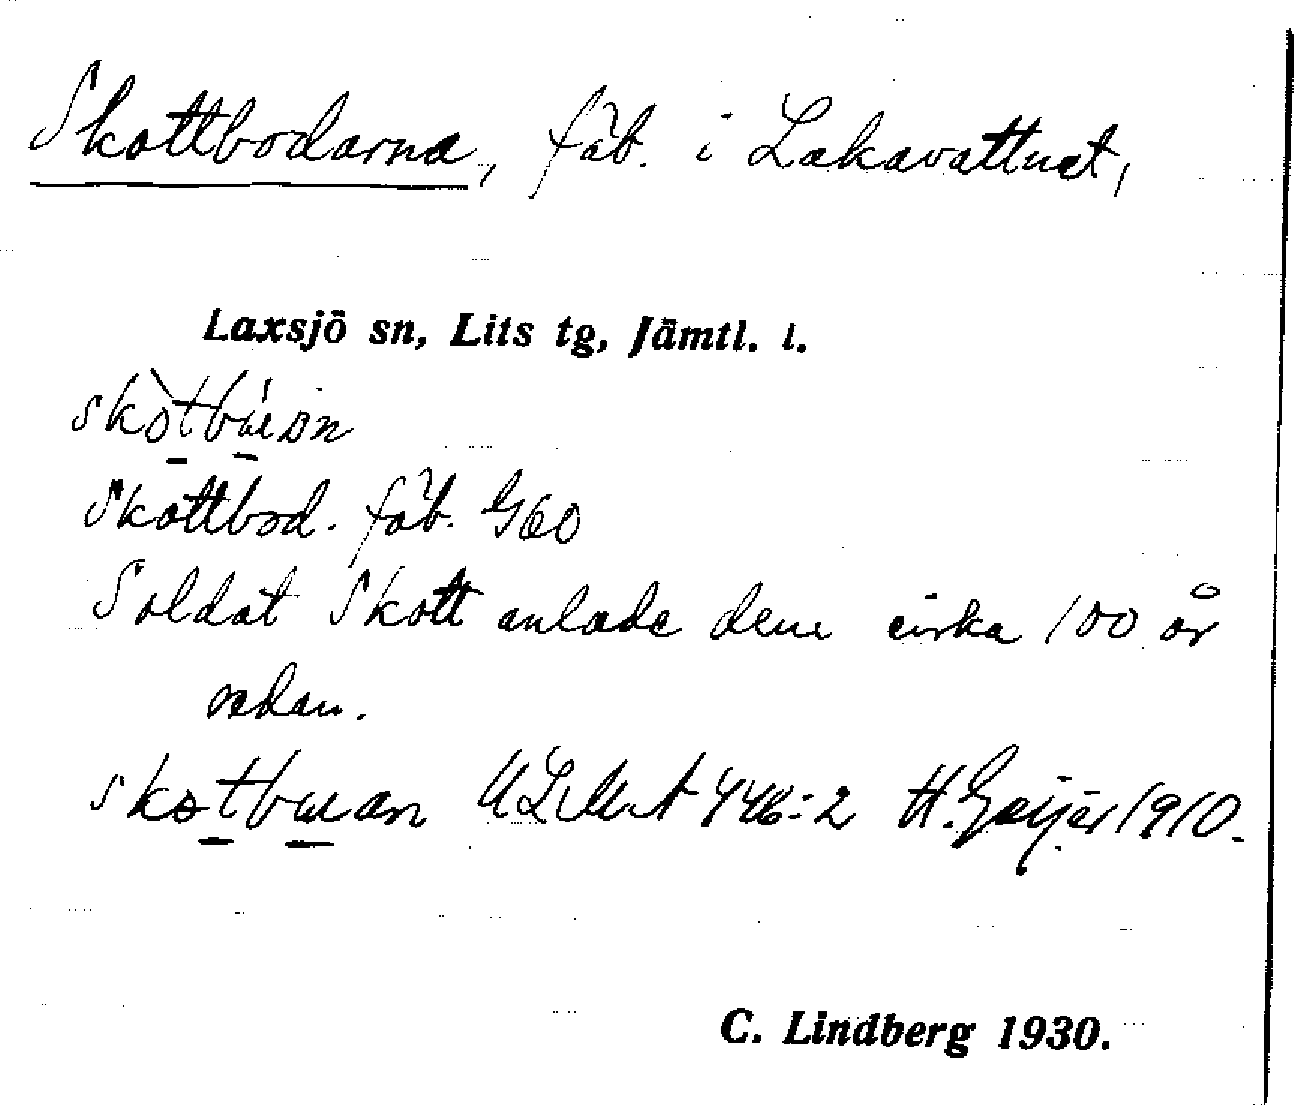 Skottbodarna, fäb. i Lakavattnet,
Laxsjö sn, Lits tg, Jämtl. l.
Skottbod. fäb. G60
Soldat Skott anlade dem cirka 100 år
sedan.
ULMA 446:2 H. Geijer 1910.
C. Lindberg 1930.